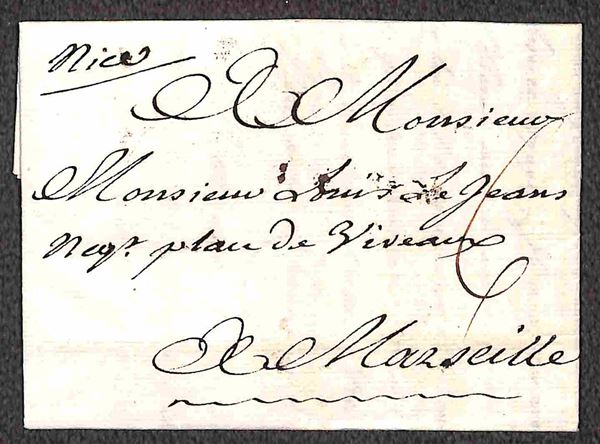 Nice
A Monsieur
Monsieur Louis Le Jeans
Negt. place de Viveaux
A Marseille